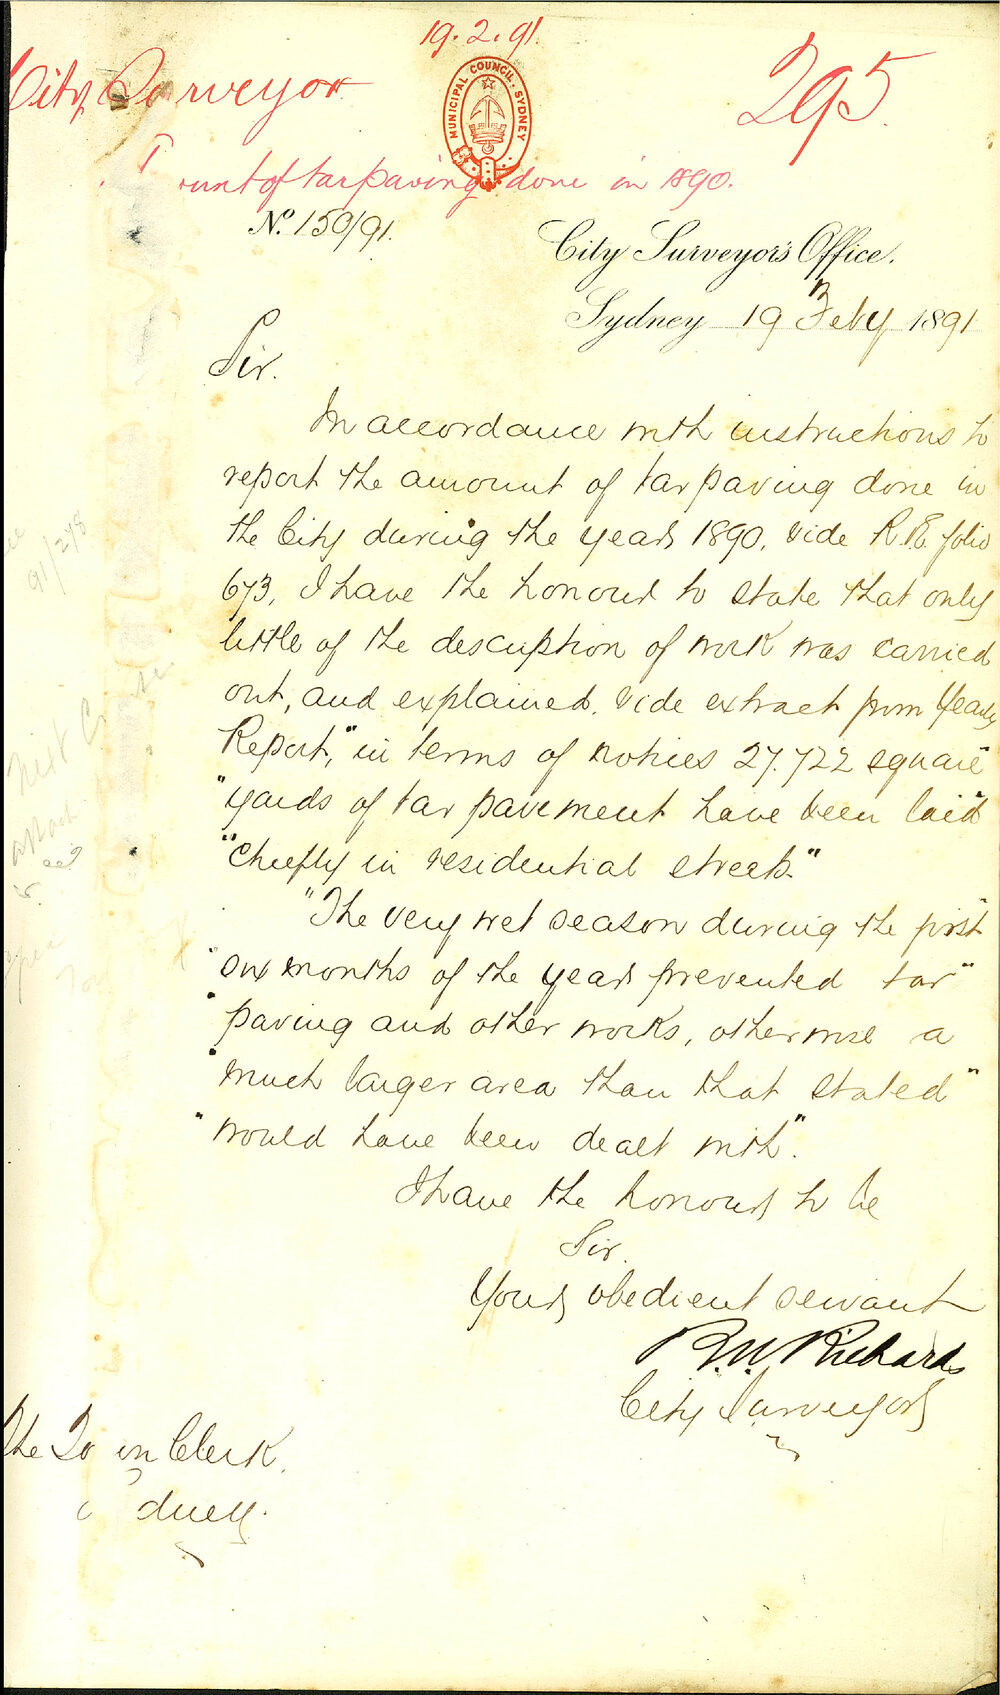 19.2.91.
City Surveyor
295.
MUNICIPAL COUNCIL. SYDNEY
ount of tarpaving done in 1890.
No. 150/91.
City Surveyor's Office.
Sydney 19 Feby 1891
Sir.
In accordance with instructions to
report the amount of tar paving done in
the City during the year 1890, vide R.E. folio
673, I have the honour to state that only
little of the description of work was carried
out, and explained. Vide extract from Yearly
Report, "in terms of notices 27.722 square"
"yards of tar pavement have been laid"
"chiefly in residential streets."
"The very wet season during the first"
"six months of the year prevented tar"
"paving and other works, otherwise a
"much larger area than that stated"
"would have been dealt with".
I have the honour to be
Sir.
Your obedient servant
R.W. Richards
City Surveyor
The Town Clerk.
91/278